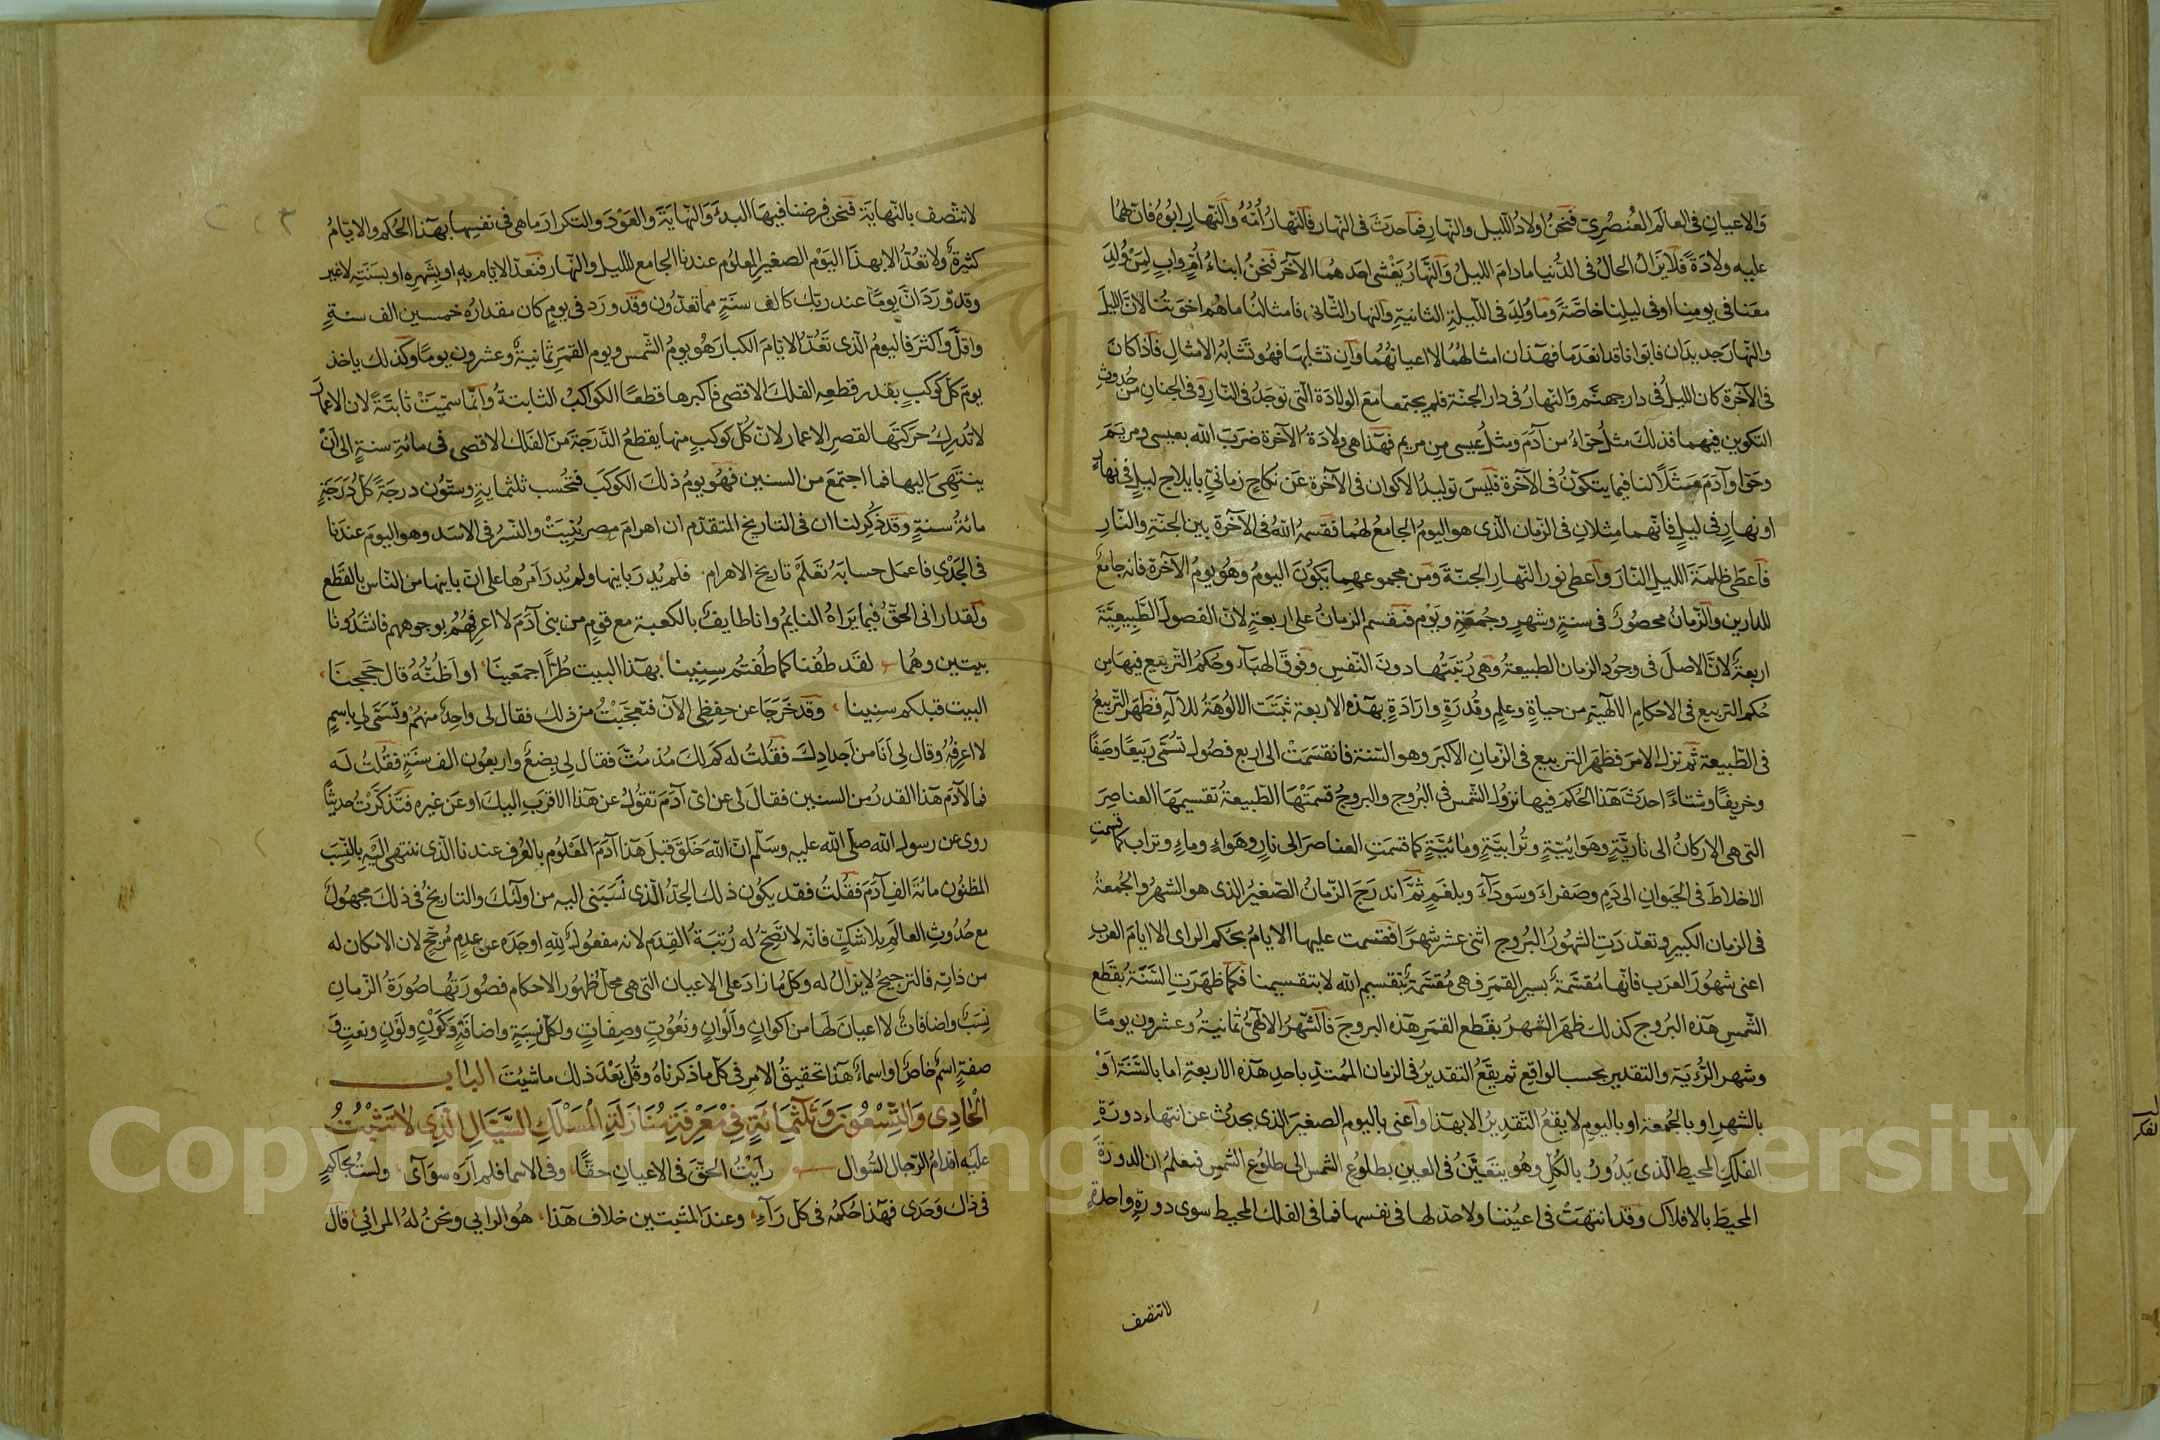 والاعيان في العالم العنصري فنحن اولاد الليل والنهار فما حدث في النهار فالنهار امه والنهار ابوه فان لهما
عليه ولادة فلا يزال الحال في الدنيا مادام الليل والنهار يغشى احدهما الآخر فنحن ابناء ام واب لمن ولد
معنا في يومنا او في ليلنا خاصة وما ولد في الليلة الثانية والنهار الثاني فامثالنا ما هم اخوتنا لان الليل
والنهار جديدان فابوانا قد انعدما فهذان امثالهما لا اعيانهما وان تشابها فهو تشابه الامثال فاذا كان
في الآخرة كان الليل في دار جهنم والنهار في دار الجنة فلم يجتمعا مع الولادة التي توجد في النار وفي الجنان من حدوث
التكوين فيهما فذلك مثل حواء من آدم ومثل عيسى من مريم فهذا هي ولادة الآخرة ضرب الله بعيسى ومريم
وحوا وآدم مثلا لنا فيما يتكون في الآخرة فليس توليد الاكوان في الآخرة عن نكاح زماني بايلاج ليل في نهار
او نهار في ليل فانهما مثلان في الزمان الذي هو اليوم الجامع لهما فقسمه الله في الآخرة بين الجنة والنار
فاعطى ظلمة الليل النار واعطى نور النهار الجنة ومن مجموعهما يكون اليوم وهو يوم الآخرة فانه جامع
للدارين والزمان محصور في سنة وشهر وجمعة ويوم فنقسم الزمان على اربعة لان الفصول الطبيعية
اربعة لان الاصل في وجود الزمان الطبيعة وهي رتبتها دون النفس وفوق الهباء وحكم التربيع فيها من
حكم التربيع في الاحكام الالهية من حياة وعلم وقدرة وارادة بهذه الاربعة ثبتت الالوهة للاله فظهر التربيع
في الطبيعة ثم نزل الامر فظهر التربيع في الزمان الاكبر وهو السنة فانقسمت الى اربع فصول تسمى ربيعا وصيفا
وخريفا وشتاء احدث هذا الحكم فيها نزول الشمس في البروج والبروج قسمتها الطبيعة تقسيمها العناصر
التي هي الاركان الى نارية وهوائية وترابية ومائية كما قسمت العناصر الى نار وهواء وماء وتراب كما قسمت
الاخلاط في الحيوان الى دم وصفراء وسوداء وبلغم ثم اندرج الزمان الصغير الذي هو الشهر والجمعة
في الزمان الكبير وتعددت الشهور البروج اثنى عشر شهرا فقسمت عليها الايام بحكم الراي الا ايام العرب
اعني شهور العرب فانها مقسمة بسير القمر فهي مقسمة بتقسيم الله لا بتقسيمنا فكما ظهرت السنة بقطع
الشمس هذه البروج كذلك ظهر الشهر بقطع القمر هذه البروج فالشهر الالهي ثمانية وعشرون يوما
وشهر الرؤية والتقدير بحسب الواقع ثم يقع التقدير في الزمان الممتد باحد هذه الاربعة اما بالسنة او
بالشهر او بالجمعة او باليوم لا يقع التقدير الا بهذا واعني باليوم الصغير الذي يحدث عن انتهاء دورة
الفلك المحيط الذي يدور بالكل وهو يتعين في العين بطلوع الشمس الى طلوع الشمس فيعلم ان الدورة
المحيط بالافلاك وقد انتهت في اعيننا ولا حد لها في نفسها فما في الفلك المحيط سوى دورة واحدة
لا تتصف
لا تتصف بالنهاية فنحن فرضنا فيها البدء والنهاية والعود والتكرار ما هي في نفسها بهذا الحكم والايام
كثيرة ولا تعد الا بهذا اليوم الصغير المعلوم عندنا الجامع لليل والنهار فتعد الايام به او بشهره او بسنته لا غير
وقد ورد ان يوما عند ربك كالف سنة مما تعدون وقد ورد في يوم كان مقداره خمسين الف سنة
واقل واكثر فاليوم الذي تعد الايام الكبار هو يوم الشمس ويوم القمر ثمانية وعشرون يوما وكذلك ياخذ
يوم كل كوكب بقدر قطعه الفلك الاقصى فاكبرها قطعا الكواكب الثابتة وانما سميت ثابتة لان الاعمار
لا تدرك حركتها لقصر الاعمار لان كل كوكب منها يقطع الدرجة من الفلك الاقصى في مائة سنة الى ان
ينتهي اليها فما اجتمع من السنين فهو يوم ذلك الكوكب فتحسب ثلثماية وستون درجة كل درجة
مائة سنة وقد ذكر لنا ان في التاريخ المتقدم ان اهرام مصر بنيت والنسر في الاسد وهو اليوم عندنا
في الجدي فاعمل حسابه تعلم تاريخ الاهرام فلم يدر بانيها ولم يدر امرها على ان بانيها من الناس بالقطع
ولقد اراني الحق فيما يراه النايم وانا طايف بالكعبة مع قوم من بني آدم لا اعرفهم بوجوههم فانشدونا
بيتين وهما لقد طفنا كما طفتم سنينا بهذا البيت طرا اجمعينا او اظنه قال حججنا
البيت قبلكم سنينا وقد خرجا عن حفظي الآن فتعجبت من ذلك فقال لي واحد منهم وتسمى لي باسم
لا اعرفه وقال لي انا من اجدادك فقلت له كم لك مذ مت فقال لي بضع واربعون الف سنة فقلت له
فما لآدم هذا القدر من السنين فقال لي عن اي آدم تقول عن هذا الاقرب اليك او عن غيره فتذكرت حديثا
روى عن رسول الله صلى الله عليه وسلم ان الله خلق قبل هذا آدم المعلوم بالعرف عندنا الذي ننتهي اليه بالنسب
المظنون مائة الف آدم فقلت فقد يكون ذلك الجد الذي نسبني اليه من اولئك والتاريخ في ذلك مجهول
مع حدوث العالم بلا شك فانه لا تصح له رتبة القدم لانه مفعول لله اوجده عن عدم مرجح لان الامكان له
من ذاته فالترجيح لا يزال له وكل ما زاد على الاعيان التي هي محل ظهور الاحكام فصورتها صورة الزمان
نسب واضافات لا اعيان لها من اكوان والوان ونعوت وصفات ولكل نسبة واضافة وكون ولون ونعت و
صفة اسم خاص او اسماء هذا تحقيق الامر في كل ما ذكرناه وقل بعد ذلك ما شيت الباب
الحادي والتسعون وثلثمائة في معرفة منازلة المسلك السيال الذي لا تثبت
عليه اقدام الرجال السوال رايت الحق في الاعيان حقا وفي الاسما فلم اره سوآي ولست بحاكم
في ذاك وحدي فهذا حكمه في كل رآء وعند المثبتين خلاف هذا هو الرايي ونحن له المرائي قال